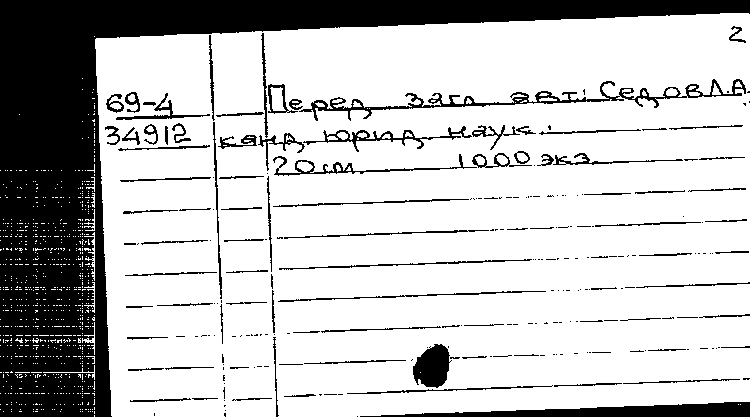 2
69-4 Перед загл. авт.: Седов Л.А.
34912 канд. юрид. наук.
20 см. 1000 экз.